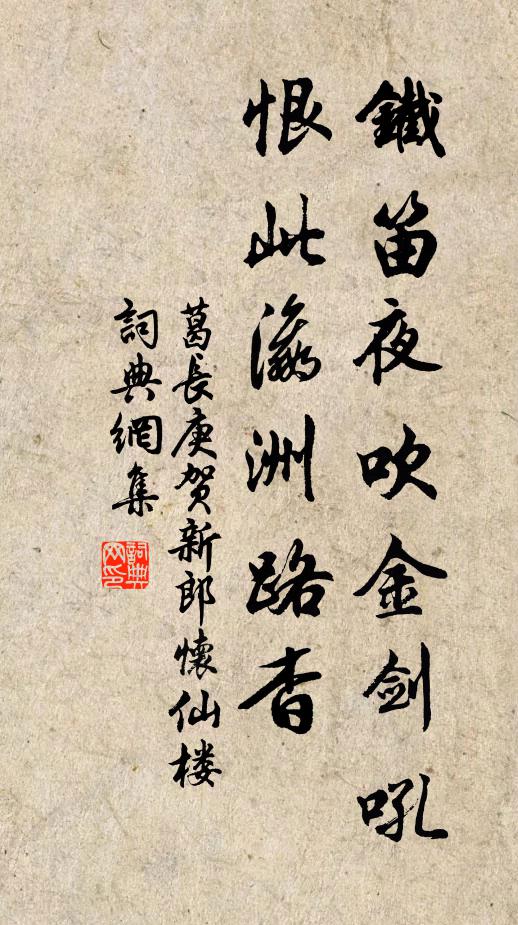 鐵笛夜吹金劍吼
恨此瀛洲路杳
葛長庚贺新郎懷仙楼
詞典網集
詞典网印